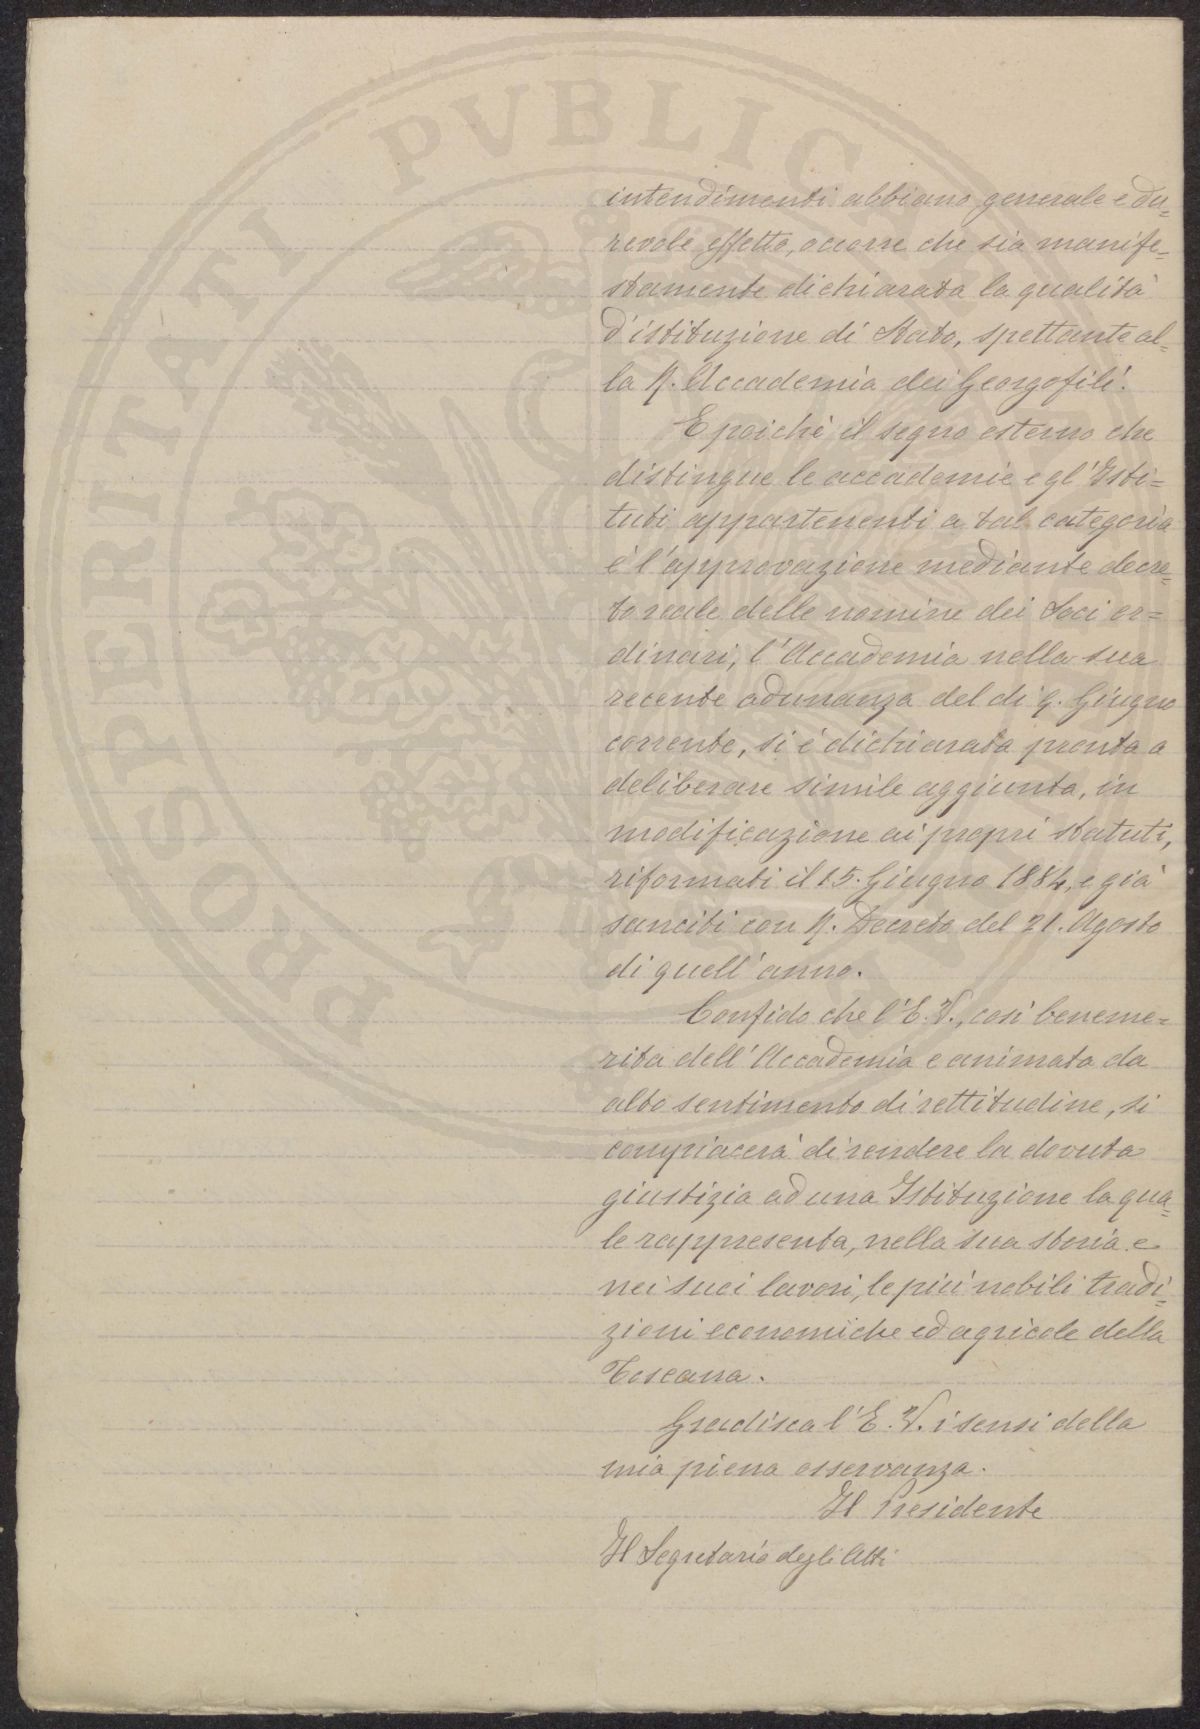 PROSPERITATI PVBLICAE
intendimenti abbiano generale e du=
revole effetto, occorre che sia manife=
stamente dichiarata la qualità
d'istituzione di Stato, spettante al=
la R. Accademia dei Georgofili.
E poichè il segno esterno che
distingue le accademie e gl'Isti=
tuti appartenenti a tal categoria
è l'approvazione mediante decre=
to reale delle nomine dei Soci or=
dinari, l'Accademia nella sua
recente adunanza del dì 9. Giugno
corrente, si è dichiarata pronta a
deliberare simile aggiunta, in
modificazione ai propri statuti,
riformati il 15. Giugno 1884, e già
sanciti con R. Decreto del 21. Agosto
di quell'anno.
Confido che l'E. V., così beneme=
rita dell'Accademia e animata da
alto sentimento di rettitudine, si
compiacerà di rendere la dovuta
giustizia ad una Istituzione la qua=
le rappresenta, nella sua storia e
nei suoi lavori, le più nobili tradi=
zioni economiche ed agricole della
Toscana.
Gradisca l'E. V. i sensi della
mia piena osservanza.
Il Presidente
Il Segretario degli Atti